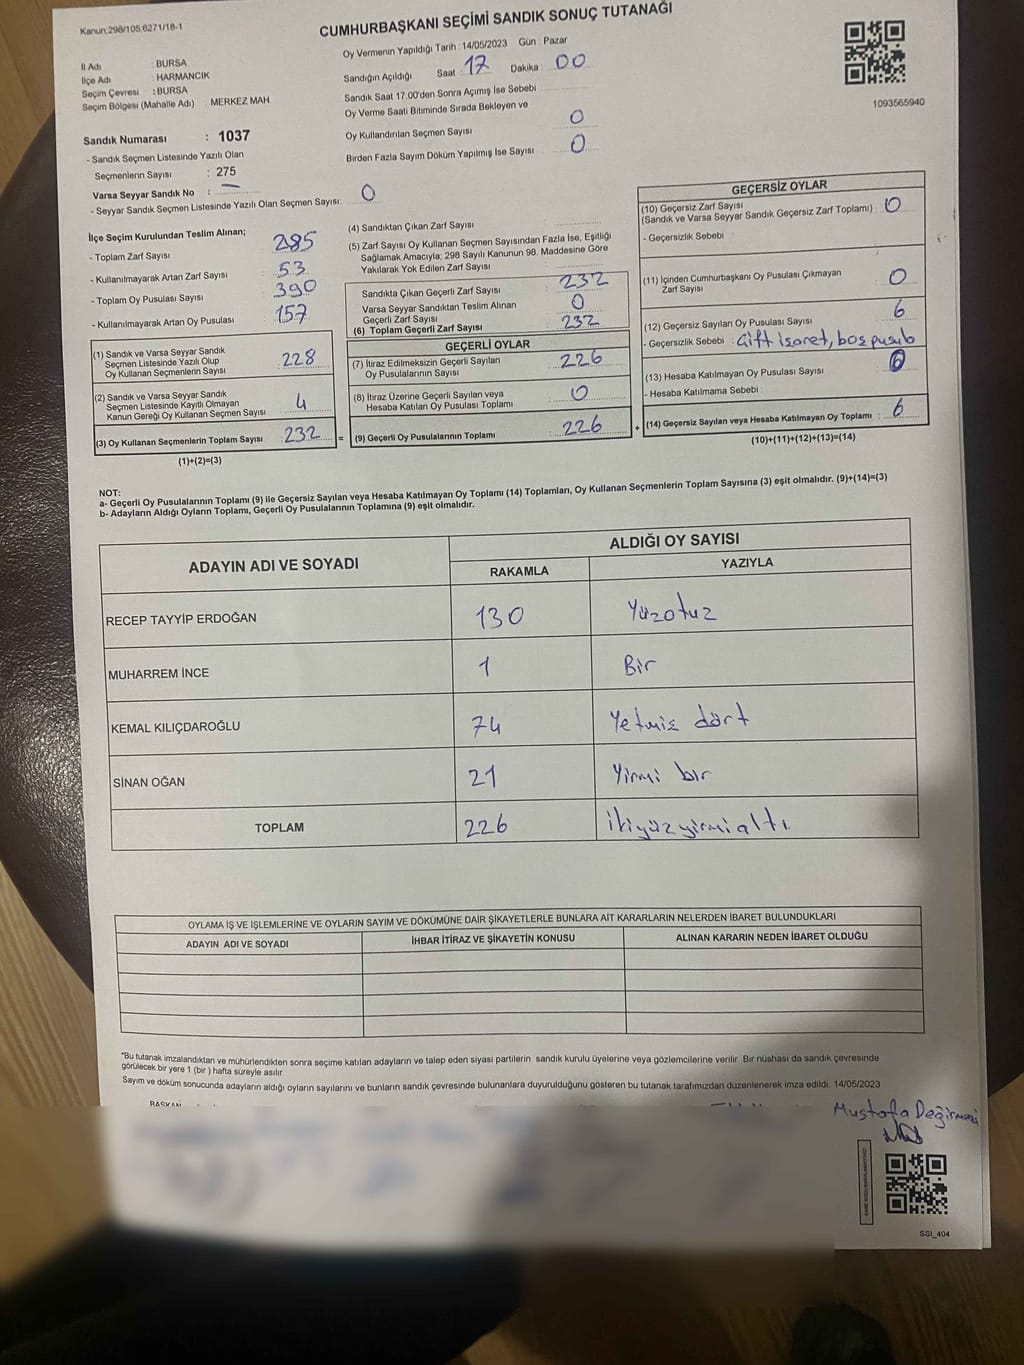 Kanun,298/105,6271/18-1
CUMHURBAŞKANI SEÇİMİ SANDIK SONUÇ TUTANAĞI
Oy Vermenin Yapıldığı Tarih : 14/05/2023 Gün : Pazar
Sandığın Açıldığı Saat : 17 Dakika : 00
Sandık Saat 17:00'den Sonra Açımış İse Sebebi
Oy Verme Saati Bitiminde Sırada Bekleyen ve
Oy Kullandırılan Seçmen Sayısı 0
Birden Fazla Sayım Döküm Yapılmış İse Sayısı 0
1093565940
İl Adı : BURSA
İlçe Adı : HARMANCIK
Seçim Çevresi : BURSA
Seçim Bölgesi (Mahalle Adı) : MERKEZ MAH
Sandık Numarası : 1037
- Sandık Seçmen Listesinde Yazılı Olan
Seçmenlerin Sayısı : 275
Varsa Seyyar Sandık No : —
- Seyyar Sandık Seçmen Listesinde Yazılı Olan Seçmen Sayısı: 0
İlçe Seçim Kurulundan Teslim Alınan;
- Toplam Zarf Sayısı 285
- Kullanılmayarak Artan Zarf Sayısı : 53
- Toplam Oy Pusulası Sayısı : 390
- Kullanılmayarak Artan Oy Pusulası : 157
(1) Sandık ve Varsa Seyyar Sandık
Seçmen Listesinde Yazılı Olup
Oy Kullanan Seçmenlerin Sayısı : 228
(2) Sandık ve Varsa Seyyar Sandık
Seçmen Listesinde Kayıtlı Olmayan
Kanun Gereği Oy Kullanan Seçmen Sayısı : 4
(3) Oy Kullanan Seçmenlerin Toplam Sayısı : 232 =
(1)+(2)=(3)
(4) Sandıktan Çıkan Zarf Sayısı :
(5) Zarf Sayısı Oy Kullanan Seçmen Sayısından Fazla İse, Eşitliği
Sağlamak Amacıyla; 298 Sayılı Kanunun 98. Maddesine Göre
Yakılarak Yok Edilen Zarf Sayısı :
Sandıkta Çıkan Geçerli Zarf Sayısı : 232
Varsa Seyyar Sandıktan Teslim Alınan
Geçerli Zarf Sayısı : 0
(6) Toplam Geçerli Zarf Sayısı : 232
GEÇERLİ OYLAR
(7) İtiraz Edilmeksizin Geçerli Sayılan
Oy Pusulalarının Sayısı : 226
(8) İtiraz Üzerine Geçerli Sayılan veya
Hesaba Katılan Oy Pusulası Toplamı : 0
(9) Geçerli Oy Pusulalarının Toplamı : 226 +
GEÇERSİZ OYLAR
(10) Geçersiz Zarf Sayısı
(Sandık ve Varsa Seyyar Sandık Geçersiz Zarf Toplamı) : 0
- Geçersizlik Sebebi :
(11) İçinden Cumhurbaşkanı Oy Pusulası Çıkmayan
Zarf Sayısı : 0
(12) Geçersiz Sayılan Oy Pusulası Sayısı : 6
- Geçersizlik Sebebi : Çift isaret, boş pusula
(13) Hesaba Katılmayan Oy Pusulası Sayısı : 0
- Hesaba Katılmama Sebebi :
(14) Geçersiz Sayılan veya Hesaba Katılmayan Oy Toplamı : 6
(10)+(11)+(12)+(13)=(14)
NOT:
a- Geçerli Oy Pusulalarının Toplamı (9) ile Geçersiz Sayılan veya Hesaba Katılmayan Oy Toplamı (14) Toplamları, Oy Kullanan Seçmenlerin Toplam Sayısına (3) eşit olmalıdır. (9)+(14)=(3)
b- Adayların Aldığı Oyların Toplamı, Geçerli Oy Pusulalarının Toplamına (9) eşit olmalıdır.
ADAYIN ADI VE SOYADI ALDIĞI OY SAYISI
RAKAMLA YAZIYLA
RECEP TAYYİP ERDOĞAN 130 Yüzotuz
MUHARREM İNCE 1 Bir
KEMAL KILIÇDAROĞLU 74 Yetmiş dört
SİNAN OĞAN 21 Yirmi bir
TOPLAM 226 ikiyüzyirmialtı
OYLAMA İŞ VE İŞLEMLERİNE VE OYLARIN SAYIM VE DÖKÜMÜNE DAİR ŞİKAYETLERLE BUNLARA AİT KARARLARIN NELERDEN İBARET BULUNDUKLARI
ADAYIN ADI VE SOYADI İHBAR İTİRAZ VE ŞİKAYETİN KONUSU ALINAN KARARIN NEDEN İBARET OLDUĞU
*Bu tutanak imzalandıktan ve mühürlendikten sonra seçime katılan adayların ve talep eden siyasi partilerin sandık kurulu üyelerine veya gözlemcilerine verilir. Bir nüshası da sandık çevresinde
görülecek bir yere 1 (bir ) hafta süreyle asılır.
Sayım ve döküm sonucunda adayların aldığı oyların sayılarını ve bunların sandık çevresinde bulunanlara duyurulduğunu gösteren bu tutanak tarafımızdan düzenlenerek imza edildi. 14/05/2023
BAŞKAN
Mustafa Değirmenci
SSI_404